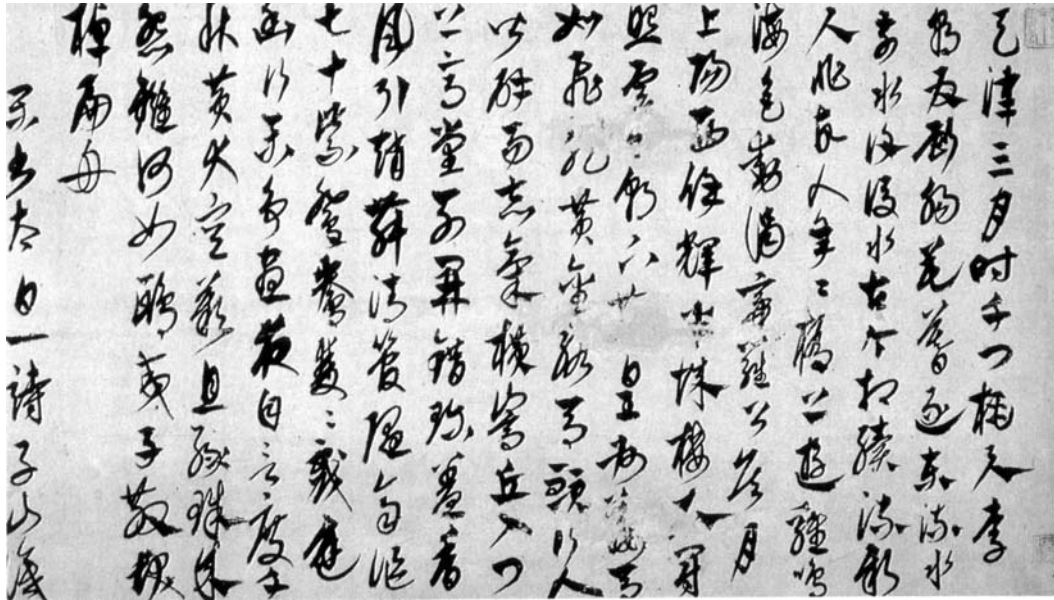 天津三月時千門桃與李
朝為斷腸花暮逐東流水
前水復後水古今相續流新
人非舊人年年橋上遊雞鳴
海色動謁帝羅公侯月
上陽西餘輝半城樓衣冠
照雲日朝下散皇州鞍馬
如飛龍黃金絡馬頭行人
皆辟易志氣橫嵩丘入門
上高堂列鼎錯珍羞香
風引趙舞清管隨齊謳
七十紫鴛鴦雙雙戲庭
幽行樂爭晝夜自言度千
秋黃犬空歎息綠珠成
怨讎何如鴟夷子散髮
棹扁舟
右書太白一詩子山識